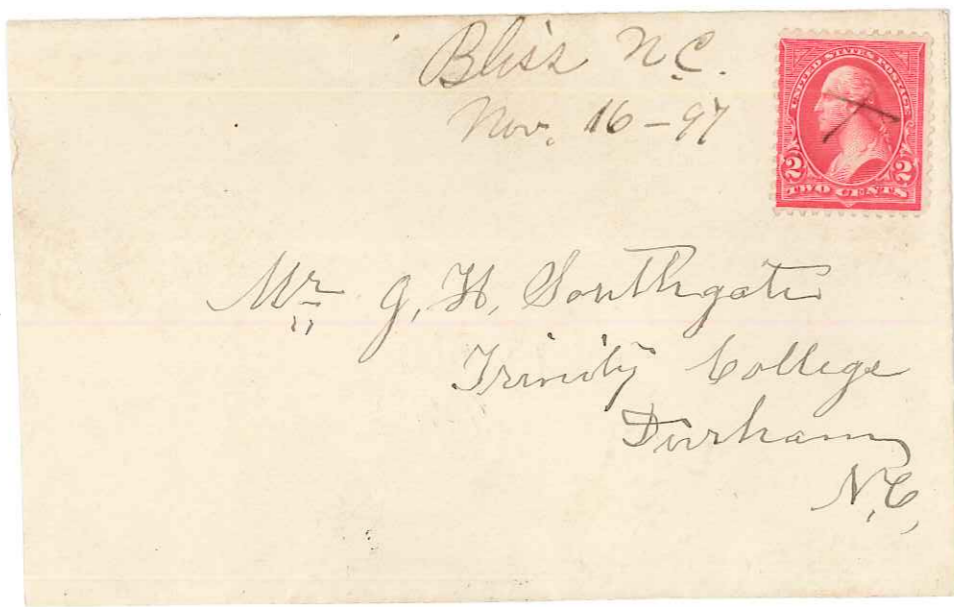 Bliss N.C.
Nov. 16-97
UNITED STATES POSTAGE
2 2
TWO CENTS
Mr. J. H. Southgate
Trinity College
Durham
N.C.